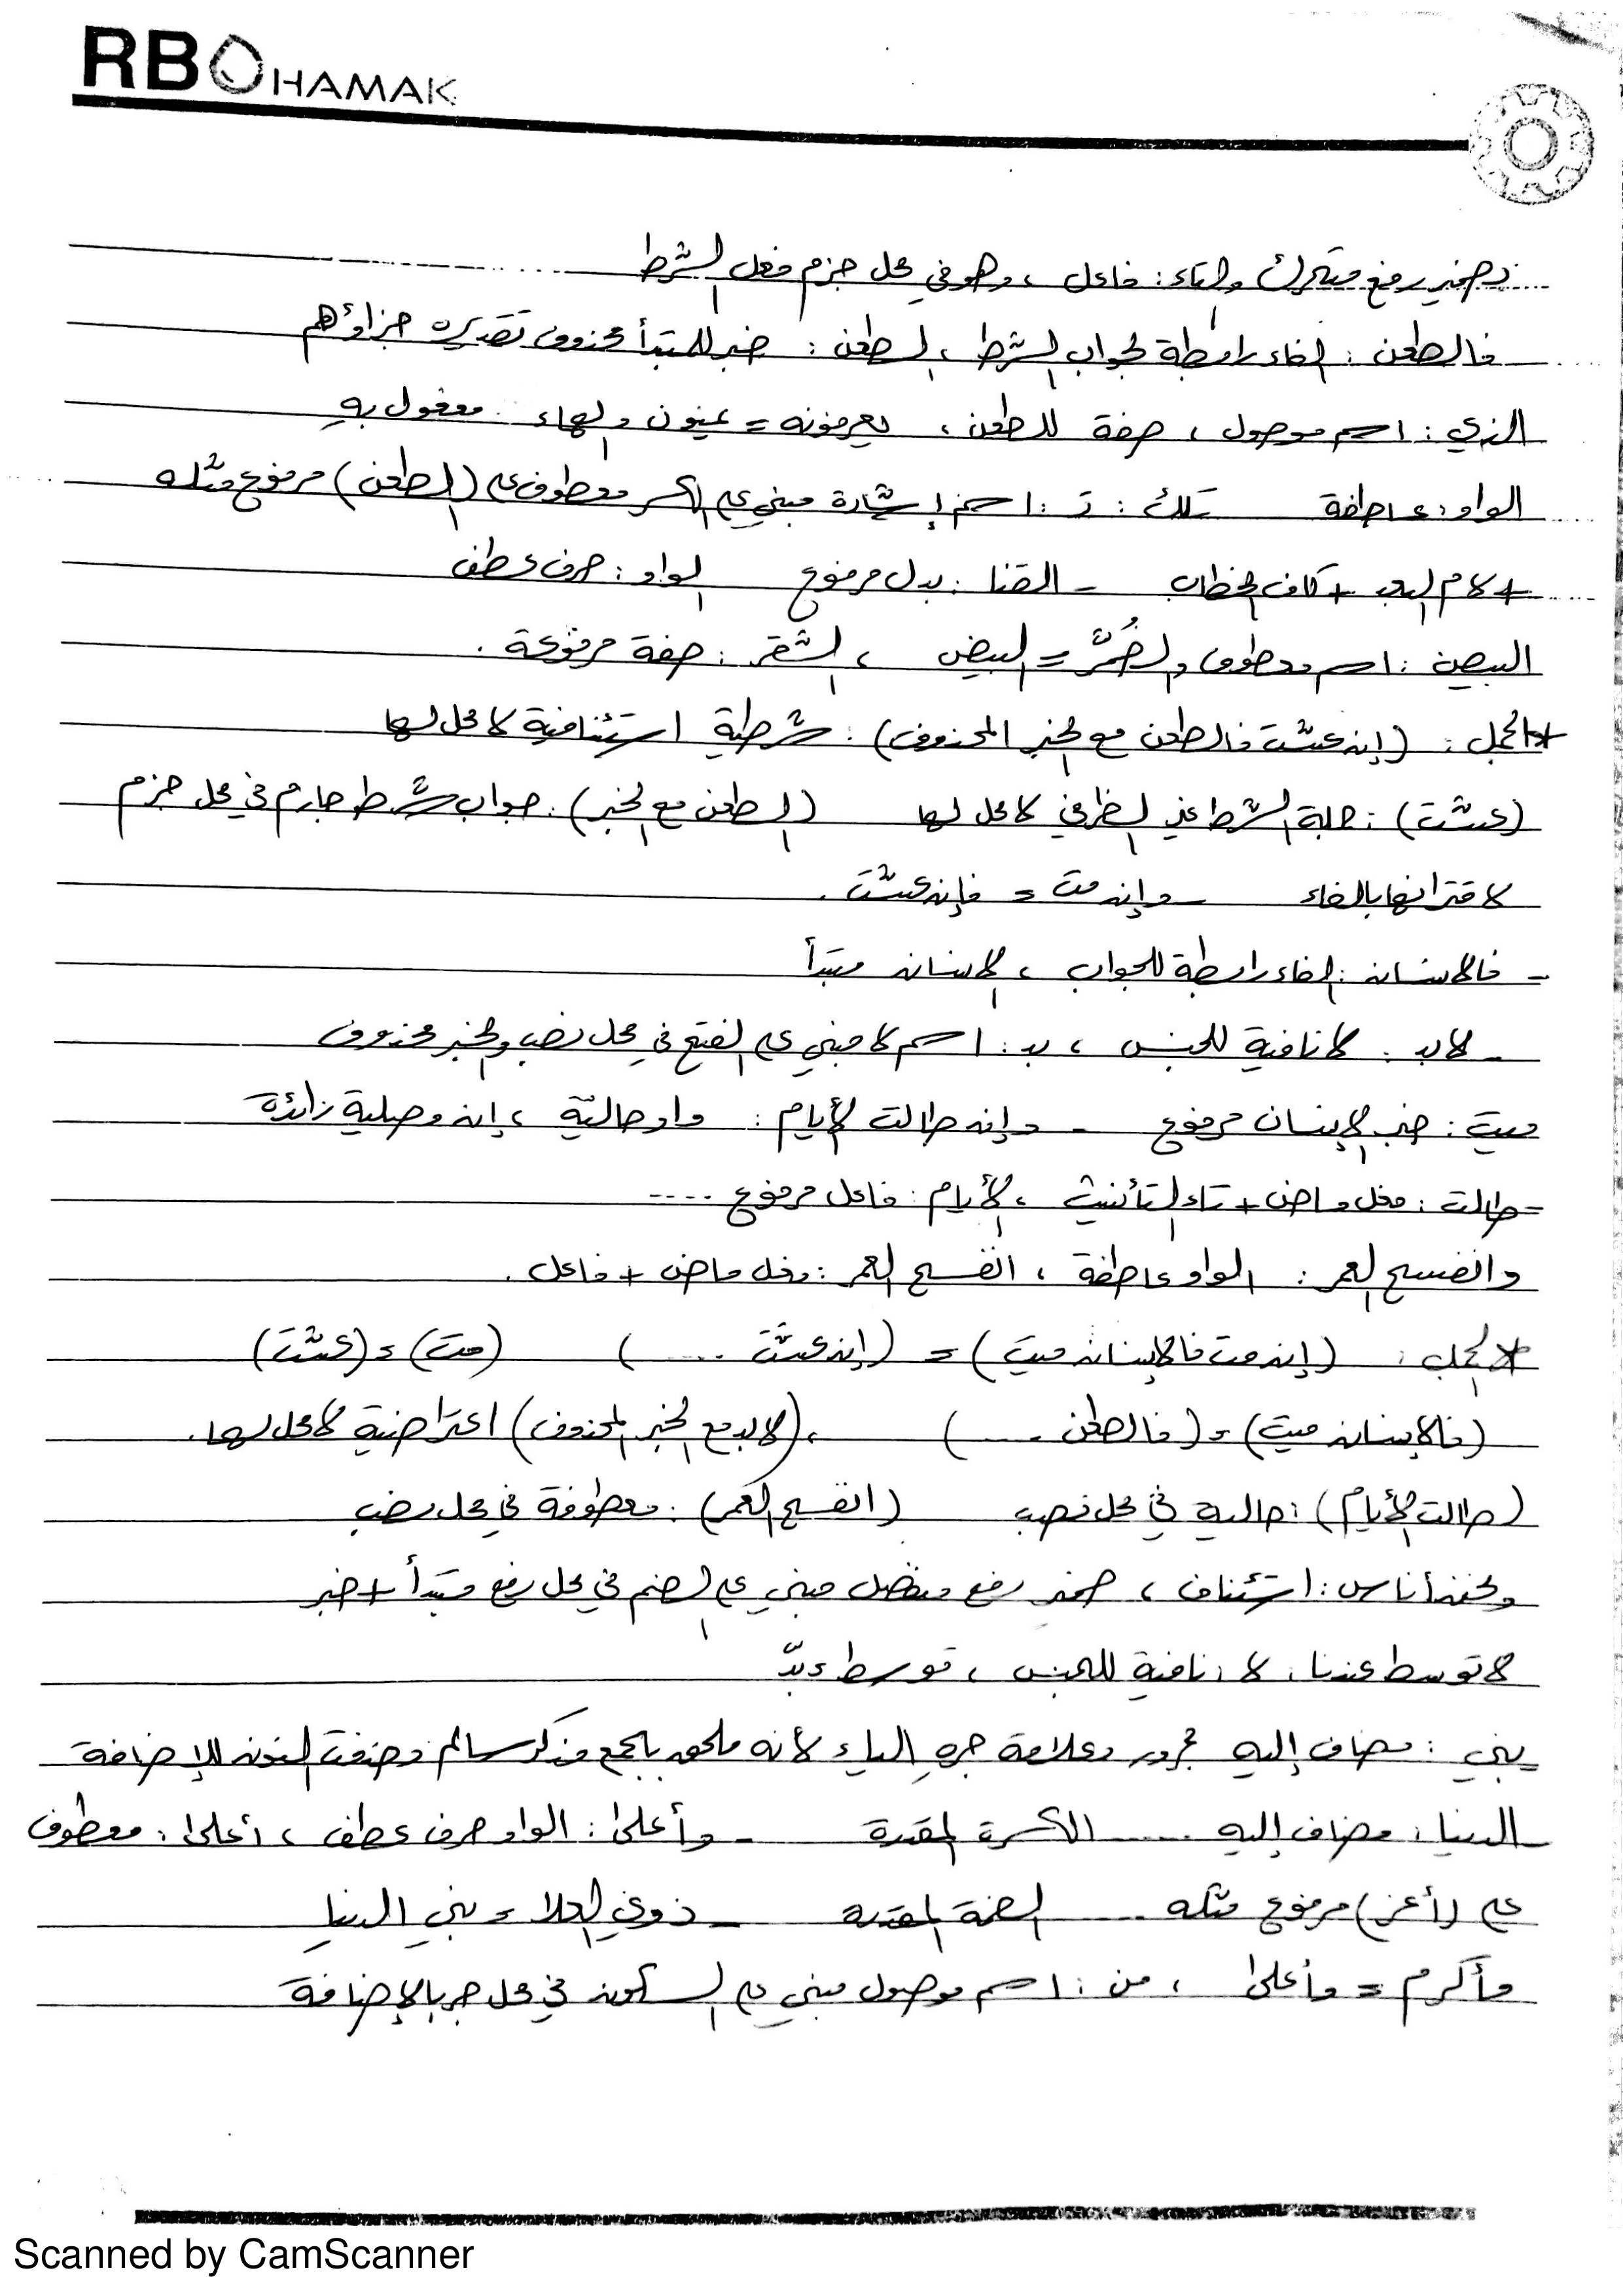 RB HAMAK
بضمير رفع متحرك والتاء: فاعل، وهو في محل جزم فعل الشرط
فالطعن: الفاء رابطة لجواب الشرط، الطعن: خبر للمبتدأ محذوف تقديره جزاؤهم
الذي: اسم موصول، صفة للطعن، يعرفونه = عينون والهاء: مفعول به
الواو: عاطفة تلك: تـ: اسم إشارة مبني على الكسر معطوف على (الطعن) مرفوع مثله
+ لام البعد + كاف الخطاب - القنا: بدل مرفوع الواو: حرف عطف
البيض: اسم معطوف والضُمَّر = البيض، الشقر: صفة مرفوعة.
* الجمل: (إن عشت فالطعن مع الخبر المحذوف): شرطية استئنافية لا محل لها
(عشت): جملة الشرط غير الظرفي لا محل لها (الطعن مع الخبر): جواب شرط جازم في محل جزم
لاقترانها بالفاء - وإن مت = فإن عشت.
- فالانسان: الفاء رابطة للجواب، الانسان مبتدأ
- لا بد: لا نافية للجنس، بد: اسم لا مبني على الفتح في محل نصب والخبر محذوف
ميت: خبر الإنسان مرفوع - وإن طالت الأيام: واو حالية، إن وصلية زائدة
- طالت: فعل ماض + تاء التأنيث، الأيام: فاعل مرفوع ....
وانفسح العمر: الواو عاطفة، انفسح العمر: فعل ماض + فاعل.
* الجمل: (إن مت فالإنسان ميت) = (إن عشت .....) (مت) = (عشت)
(فالإنسان ميت) = (فالطعن ....)، (لا بد مع الخبر المحذوف) اعتراضية لا محل لها.
(طالت الأيام): حالية في محل نصب (انفسح العمر): معطوفة في محل نصب
ونحن أناس: استئناف، ضمير رفع منفصل مبني على الضم في محل رفع مبتدأ + خبر
لا توسط عندنا: لا: نافية للجنس، توسط = بدّ
بني: مضاف إليه مجرور وعلامة جره الياء لأنه ملحق بجمع مذكر سالم وحذفت النون للإضافة
- الدنيا: مضاف إليه ..... الكسرة المقدرة - وأعلى: الواو حرف عطف، أعلى: معطوف
على (أعز) مرفوع مثله .... الضمة المقدرة - ذوي العلا = بني الدنيا
وأكرم = وأعلى، من: اسم موصول مبني على السكون في محل جر بالإضافة
Scanned by CamScanner